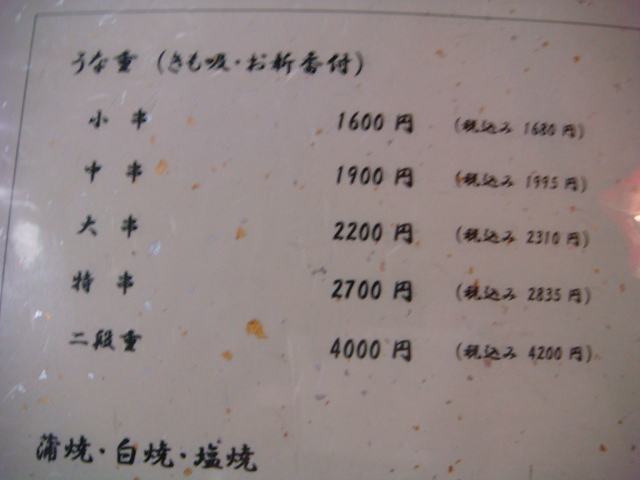 うな重(きも吸・お新香付)
小串 1600円 (税込み 1680円)
中串 1900円 (税込み 1995円)
大串 2200円 (税込み 2310円)
特串 2700円 (税込み 2835円)
二段重 4000円 (税込み 4200円)
蒲焼・白焼・塩焼